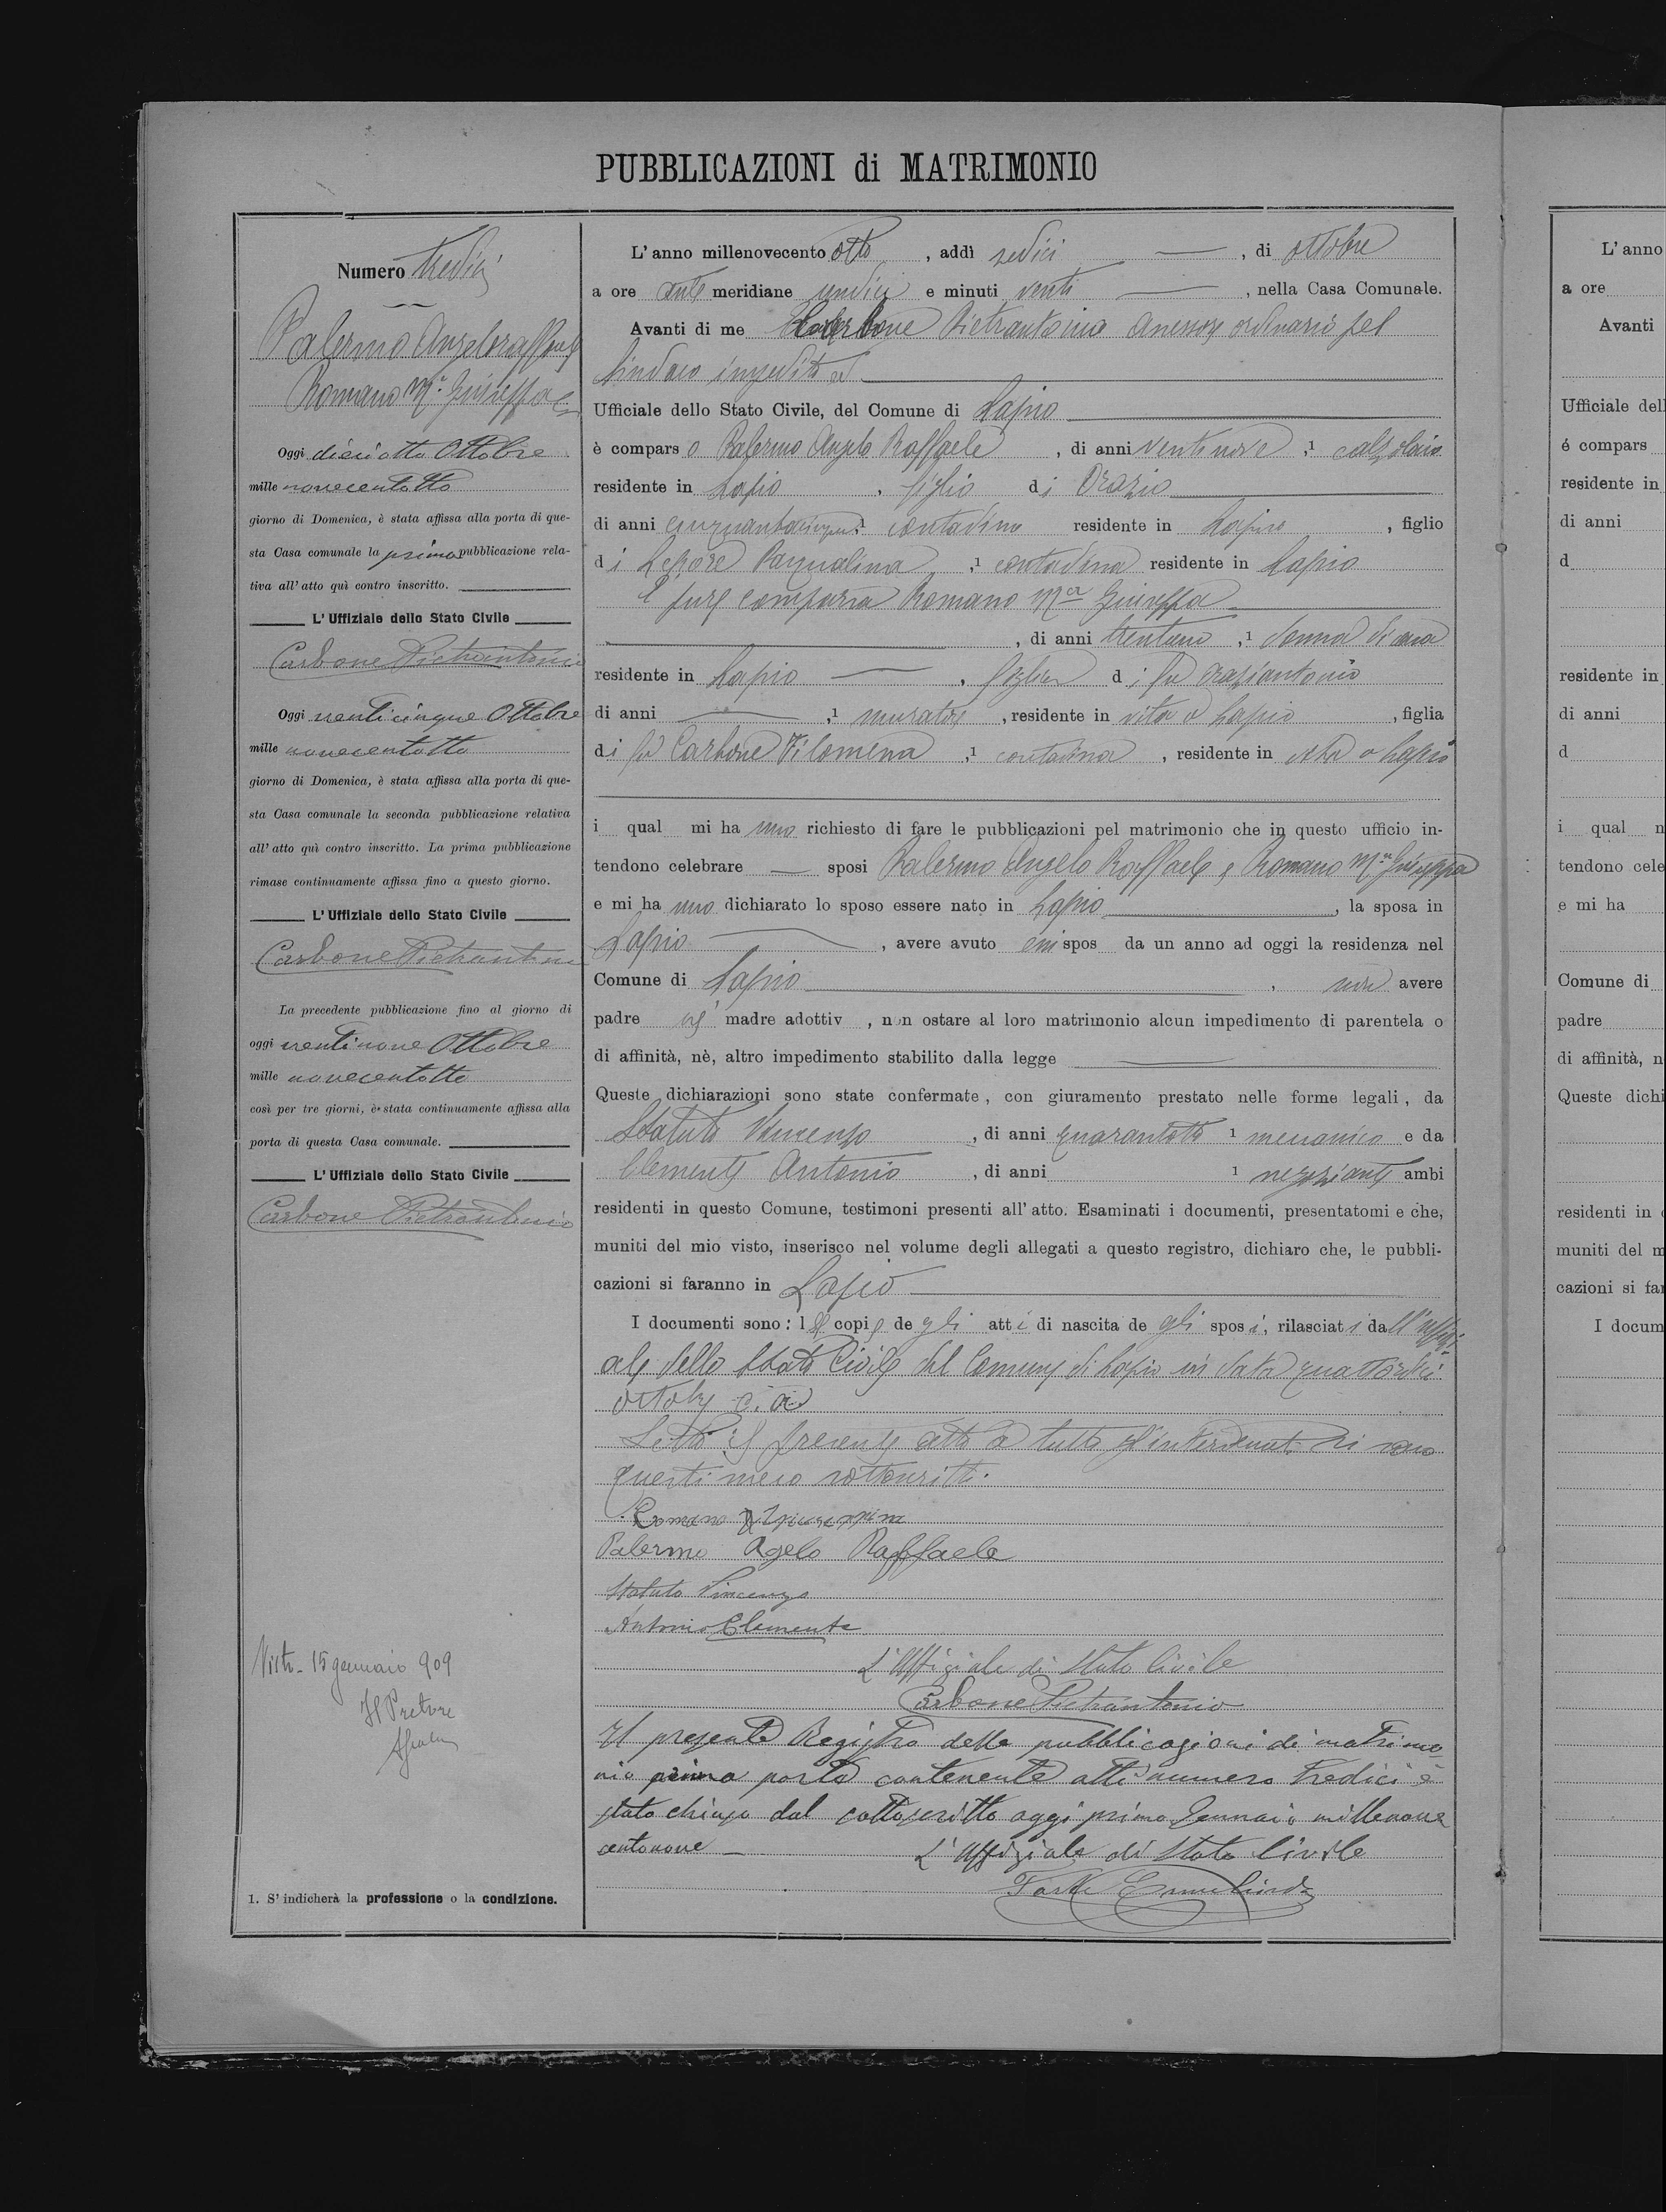 PUBBLICAZIONI di MATRIMONIO
Numero tredici
Palermo Angeloraffaele
Romano M.a Giuseppa
Oggi dieciotto Ottobre
mille novecentotto
giorno di Domenica, è stata affissa alla porta di que-
sta Casa comunale la prima pubblicazione rela-
tiva all' atto quì contro inscritto.
L' Uffiziale dello Stato Civile
Carbone Pietrantonio
Oggi venticinque Ottobre
mille novecentotto
giorno di Domenica, è stata affissa alla porta di que-
sta Casa comunale la seconda pubblicazione relativa
all' atto quì contro inscritto. La prima pubblicazione
rimase continuamente affissa fino a questo giorno.
L' Uffiziale dello Stato Civile
Carbone Pietrantonio
La precedente pubblicazione fino al giorno di
oggi ventinove Ottobre
mille novecentotto
così per tre giorni, è stata continuamente affissa alla
porta di questa Casa comunale.
L' Uffiziale dello Stato Civile
Carbone Pietrantonio
Visto - 15 gennaio 909
Il Pretore
1. S' indicherà la professione o la condizione.
L' anno millenovecento otto, addì sedici, di ottobre
a ore ante meridiane undici e minuti venti, nella Casa Comunale.
Avanti di me Carbone Pietrantonio assessore ordinario pel
Sindaco impedito
Ufficiale dello Stato Civile, del Comune di Lapio
è compars o Palermo Angelo Raffaele, di anni ventinove, 1 calzolaio
residente in Lapio, figlio di Orazio
di anni cinquantacinque, 1 contadino residente in Lapio, figlio
di Lepore Pasqualina, 1 contadina residente in Lapio
E pure comparsa Romano M.a Giuseppa
, di anni trentuno, 1 donna di casa
residente in Lapio, figlia di fu Oraziantonio
di anni, 1 muratore, residente in vita a Lapio, figlia
di fu Carbone Filomena, 1 contadina, residente in vita a Lapio
i qual mi ha nno richiesto di fare le pubblicazioni pel matrimonio che in questo ufficio in-
tendono celebrare sposi Palermo Angelo Raffaele e Romano M.a Giuseppa
e mi ha nno dichiarato lo sposo essere nato in Lapio, la sposa in
Lapio, avere avuto essi spos da un anno ad oggi la residenza nel
Comune di Lapio, non avere
padre nè madre adottiv , non ostare al loro matrimonio alcun impedimento di parentela o
di affinità, nè, altro impedimento stabilito dalla legge
Queste dichiarazioni sono state confermate, con giuramento prestato nelle forme legali, da
Statuto Vincenzo, di anni quarantotto 1 meccanico e da
Clemente Antonio, di anni 1 negoziante ambi
residenti in questo Comune, testimoni presenti all' atto. Esaminati i documenti, presentatomi e che,
muniti del mio visto, inserisco nel volume degli allegati a questo registro, dichiaro che, le pubbli-
cazioni si faranno in Lapio
I documenti sono: le copie de gli atti di nascita de gli sposi, rilasciati dall'uffizi-
ale dello Stato Civile del Comune di Lapio in data quattordici
ottobre c. a.
Letto il presente atto a tutti gl'intervenuti si sono
questi meco sottoscritti.
Romano M Giuseppina
Palermo Agelo Raffaele
Statuto Vincenzo
Antonio Clemente
L'Uffiziale di Stato Civile
Carbone Pietrantonio
Il presente Registro delle pubblicazioni di matrimo-
nio prima parte contenente atti numero tredici è
stato chiuso dal sottoscritto oggi primo Gennaio millenove
centonove
L'Uffiziale di Stato Civile
L' anno
a ore
Avanti
Ufficiale del
é compars
residente in
di anni
d
residente in
di anni
d
i qual n
tendono cele
e mi ha
Comune di
padre
di affinità, n
Queste dichi
residenti in
muniti del m
cazioni si fa
I docum